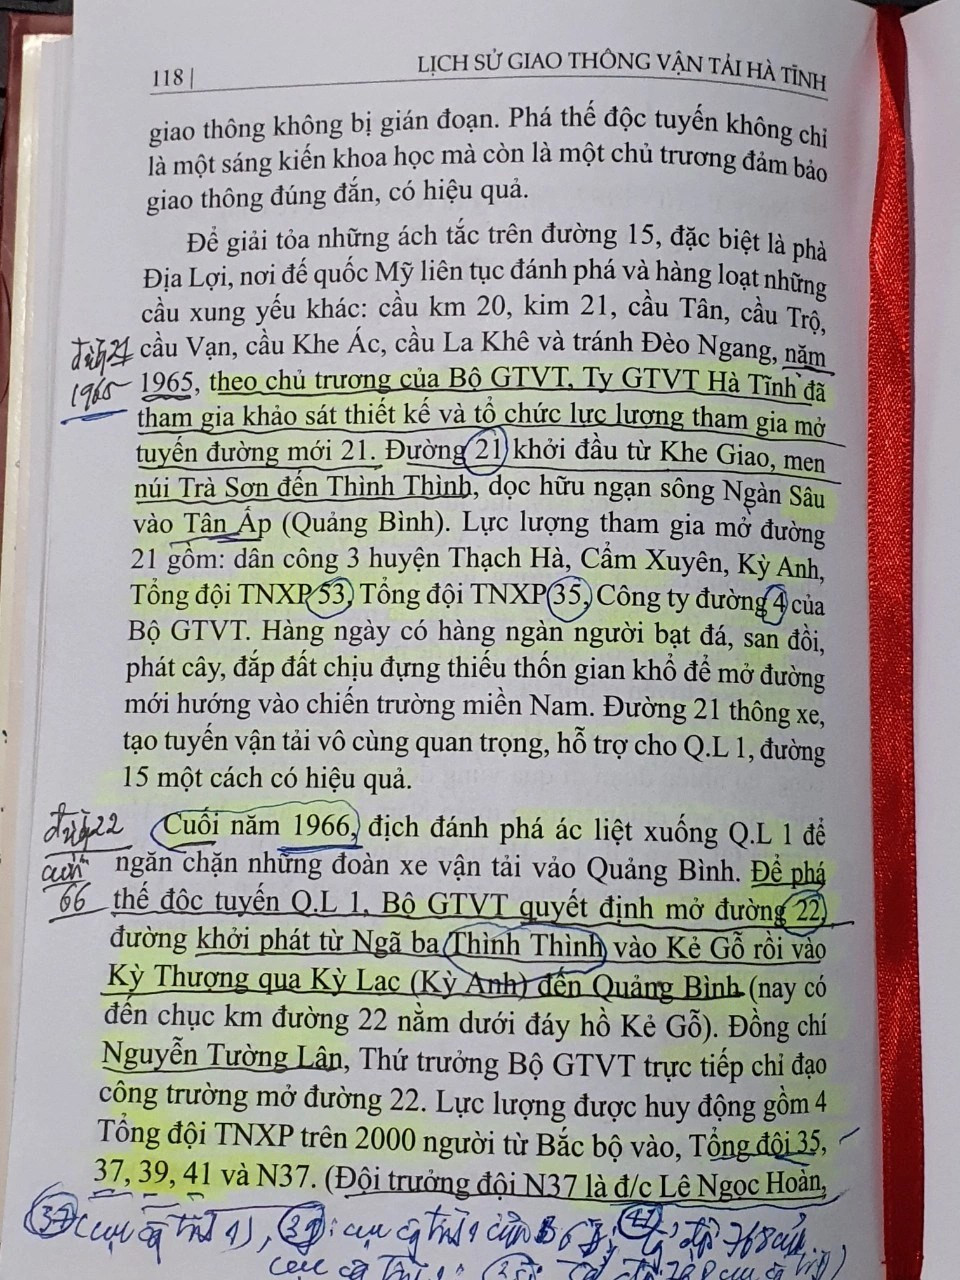 118 |
LỊCH SỬ GIAO THÔNG VẬN TẢI HÀ TĨNH
giao thông không bị gián đoạn. Phá thế độc tuyến không chỉ
là một sáng kiến khoa học mà còn là một chủ trương đảm bảo
giao thông đúng đắn, có hiệu quả.
Để giải tỏa những ách tắc trên đường 15, đặc biệt là phà
Địa Lợi, nơi đế quốc Mỹ liên tục đánh phá và hàng loạt những
cầu xung yếu khác: cầu km 20, kim 21, cầu Tân, cầu Trộ,
cầu Vạn, cầu Khe Ác, cầu La Khê và tránh Đèo Ngang, năm
1965, theo chủ trương của Bộ GTVT, Ty GTVT Hà Tĩnh đã
tham gia khảo sát thiết kế và tổ chức lực lượng tham gia mở
tuyến đường mới 21. Đường 21 khởi đầu từ Khe Giao, men
núi Trà Sơn đến Thình Thình, dọc hữu ngạn sông Ngàn Sâu
vào Tân Ấp (Quảng Bình). Lực lượng tham gia mở đường
21 gồm: dân công 3 huyện Thạch Hà, Cẩm Xuyên, Kỳ Anh,
Tổng đội TNXP 53, Tổng đội TNXP 35, Công ty đường 4 của
Bộ GTVT. Hàng ngày có hàng ngàn người bạt đá, san đồi,
phát cây, đắp đất chịu đựng thiếu thốn gian khổ để mở đường
mới hướng vào chiến trường miền Nam. Đường 21 thông xe,
tạo tuyến vận tải vô cùng quan trọng, hỗ trợ cho Q.L 1, đường
15 một cách có hiệu quả.
Cuối năm 1966, địch đánh phá ác liệt xuống Q.L 1 để
ngăn chặn những đoàn xe vận tải vảo Quảng Bình. Để phá
thế độc tuyến Q.L 1, Bộ GTVT quyết định mở đường 22,
đường khởi phát từ Ngã ba Thình Thình vào Kẻ Gỗ rồi vào
Kỳ Thượng qua Kỳ Lạc (Kỳ Anh) đến Quảng Bình (nay có
đến chục km đường 22 nằm dưới đáy hồ Kẻ Gỗ). Đồng chí
Nguyễn Tường Lân, Thứ trưởng Bộ GTVT trực tiếp chỉ đạo
công trường mở đường 22. Lực lượng được huy động gồm 4
Tổng đội TNXP trên 2000 người từ Bắc bộ vào, Tổng đội 35,
37, 39, 41 và N37. (Đội trưởng đội N37 là đ/c Lê Ngọc Hoàn,
21
1965
22
66